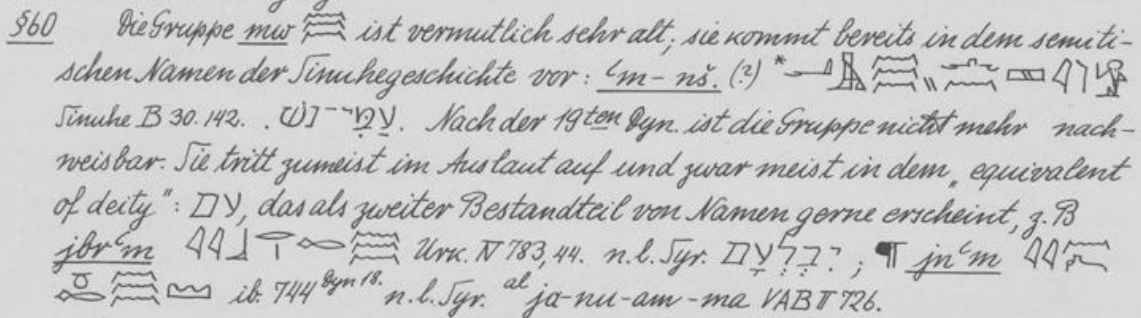 §60 Die Gruppe mw 𓈗 ist vermutlich sehr alt; sie kommt bereits in dem semiti-
schen Namen der Sinuhegeschichte vor: ꜥm-nš. (?) *
Sinuhe B 30.142. . עַמֻּ־נֵשׁ. Nach der 19ten Dyn. ist die Gruppe nicht mehr nach-
weisbar. Sie tritt zumeist im Auslaut auf und zwar meist in dem „equivalent
of deity“: עם, das als zweiter Bestandteil von Namen gerne erscheint, z. B
jbrꜥm 𓈗 Urk. IV 783,44. n.l. Syr. ; ¶ jnꜥm
𓈗 ib. 744 Dyn 18. n.l. Syr. al ja-nu-am-ma VAB II 726.